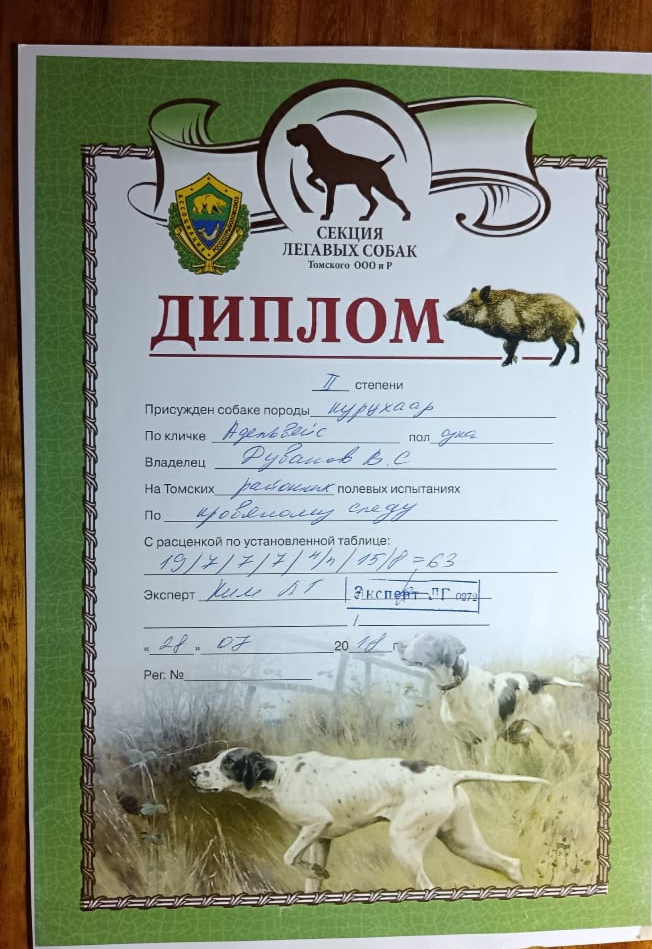 СЕКЦИЯ
ЛЕГАВЫХ СОБАК
Томского ООО и Р
ДИПЛОМ
II степени
Присужден собаке породы курцхаар
По кличке Адельвейс пол сука
Владелец В.С
На Томских районных полевых испытаниях
По кровяному следу
С расценкой по установленной таблице:
19/7/7/7/н/п/15/8=63
Эксперт Ким ЛГ Эксперт ЛГ 0272
/
« 28 » 07 2018 г
Рег. №